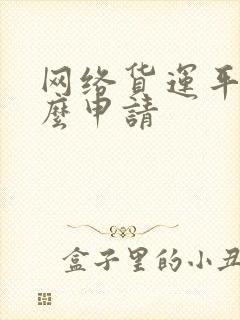 网络货運平
麼申請
盒子里的小丑